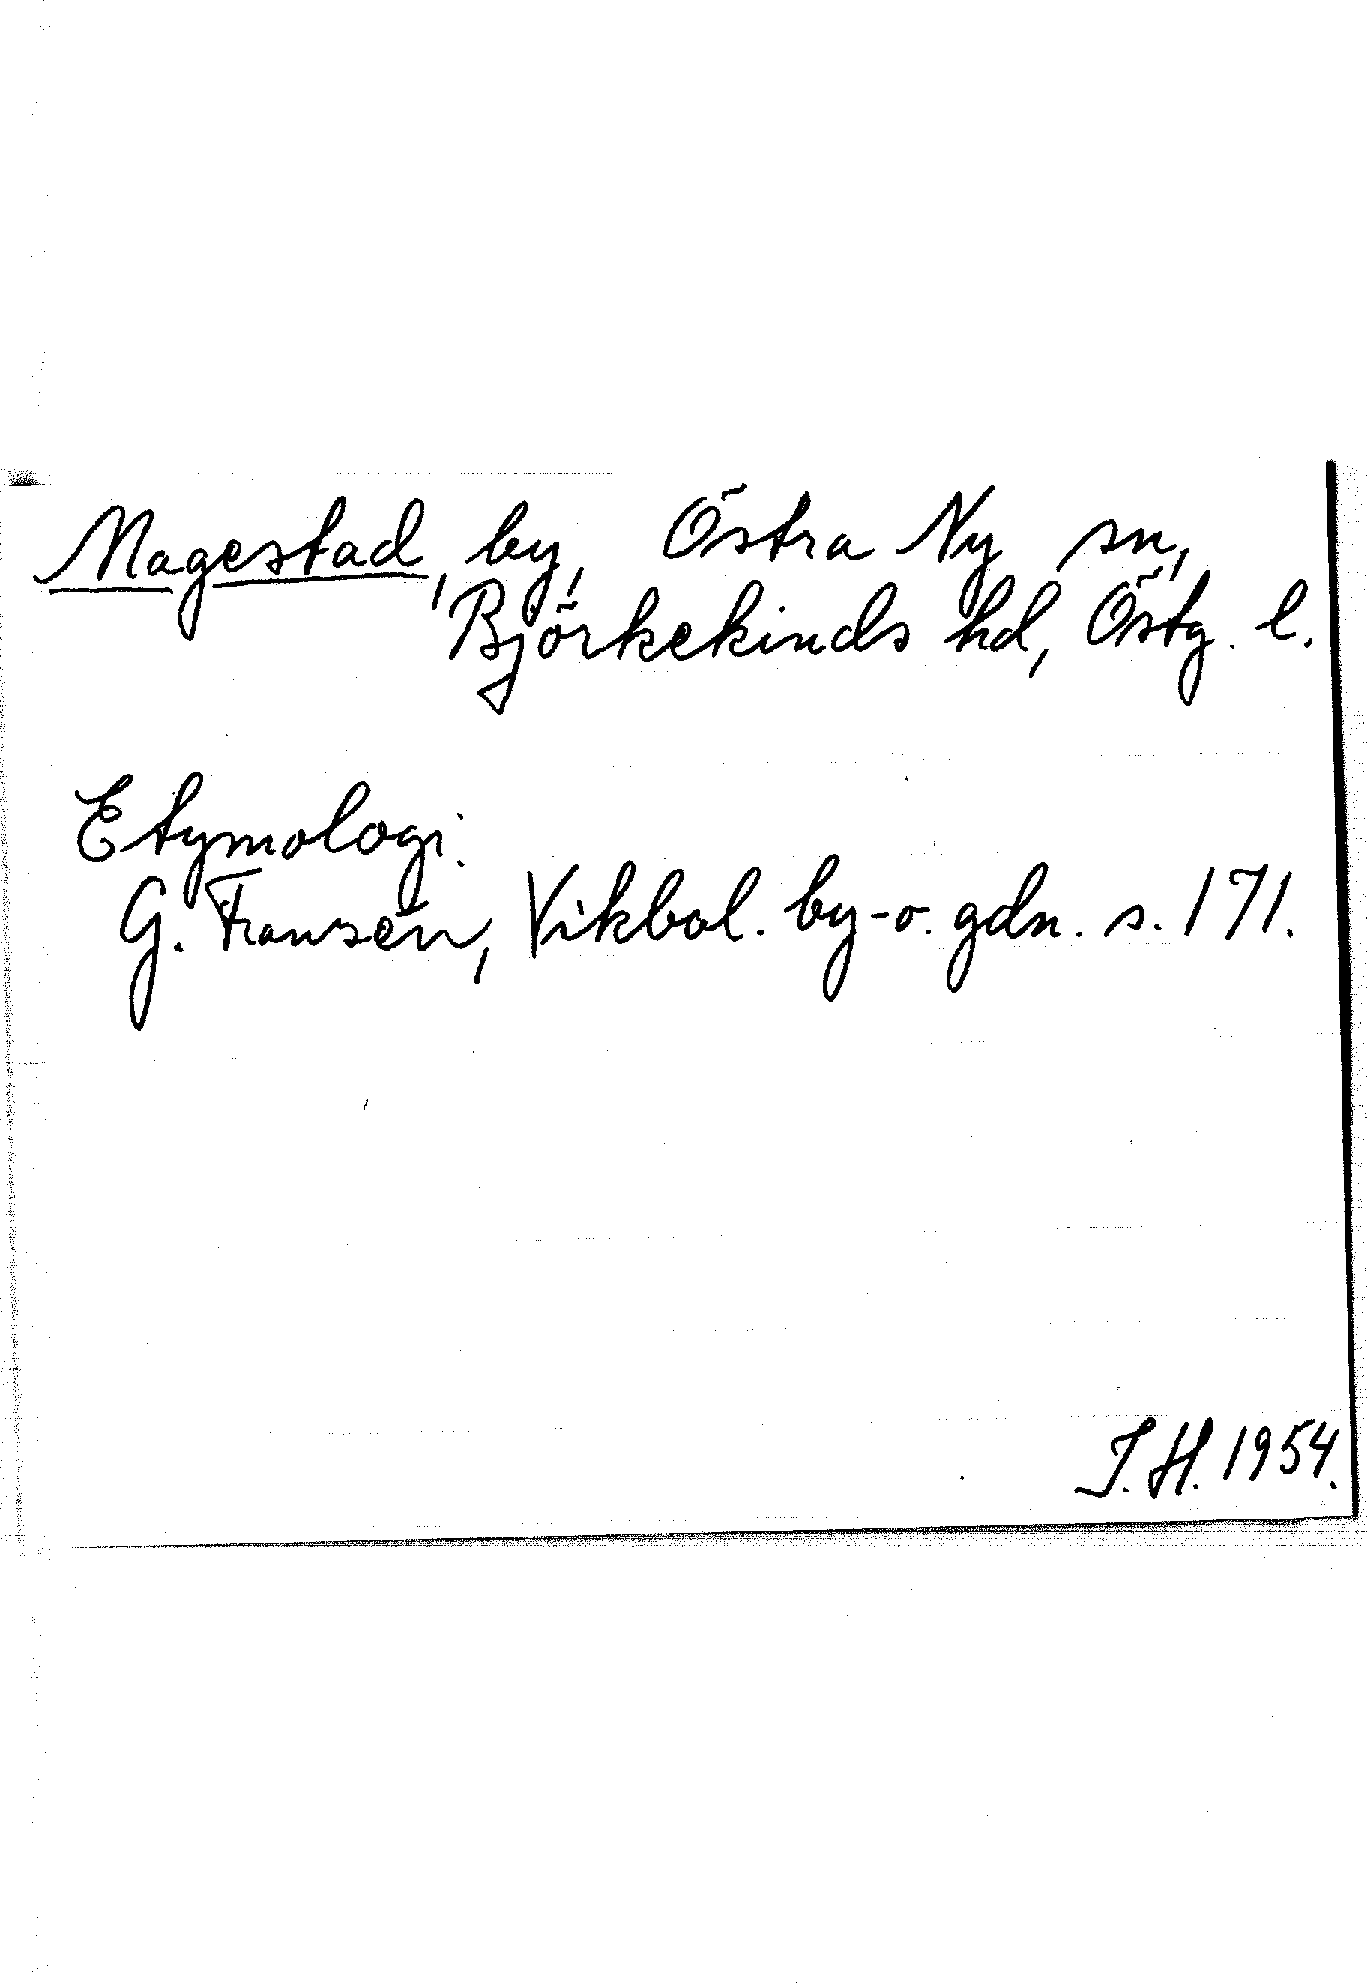 Magestad, by, Östra Ny sn,
Björkekinds hd, Östg. l.
Etymologi:
G. Franzén, Vikbol. by- o. gdn. s. 171.
I. H. 1954.